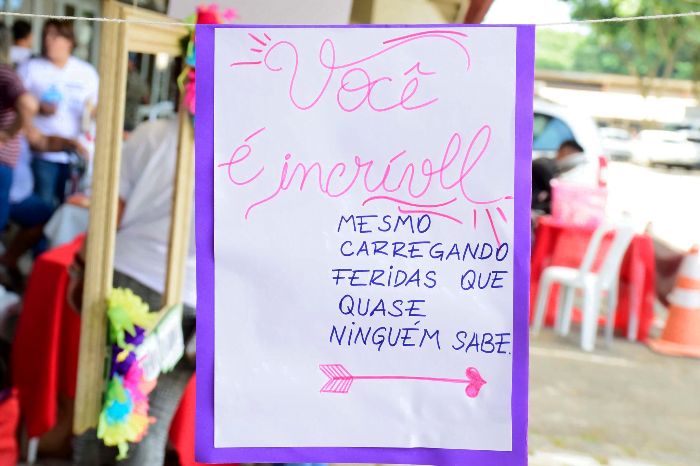 Você
é incrívell
MESMO
CARREGANDO
FERIDAS QUE
QUASE
NINGUÉM SABE.